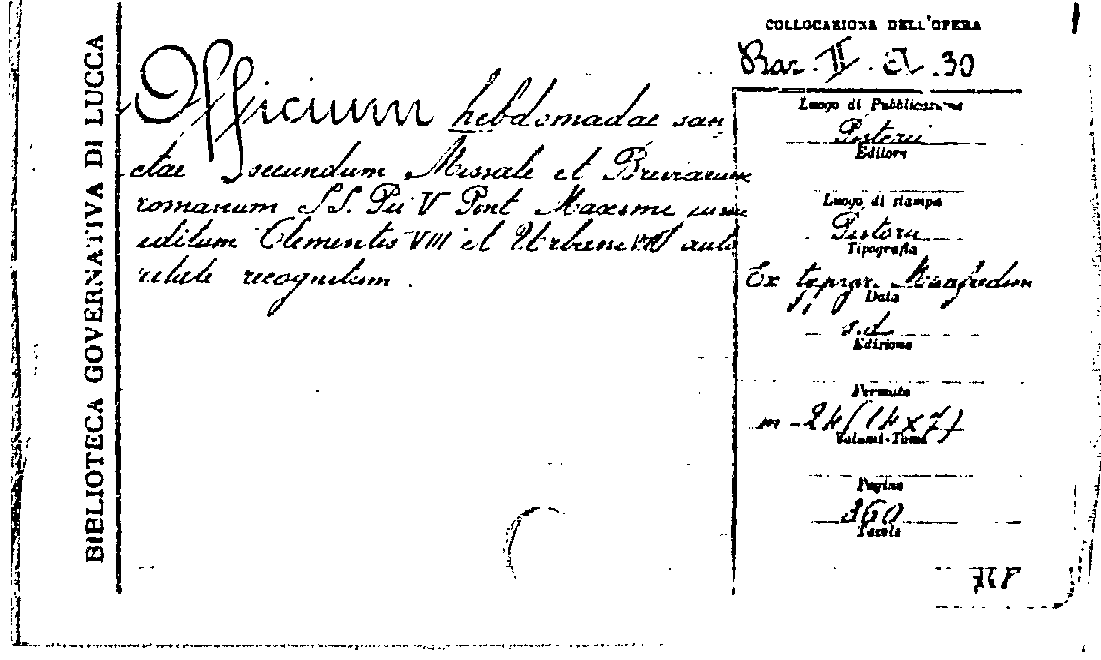 BIBLIOTECA GOVERNATIVA DI LUCCA
Officium hebdomadae san
ctae secundum Missale et Breviarium
romanum SS. Pii V Pont Maximi jussu
editum Clementis VIII et Urbani VIII aucto
ritate recognitum.
COLLOCAZIONE DELL'OPERA
Bar. II. A. 30
Luogo di Pubblicazione
Pistorii
Editore
Luogo di stampa
Pistorii
Tipografia
Ex typogr. Manfredini
Data
s.d.
Edizione
Formato
m-24 (14x7)
Volumi-Tomi
Pagine
360
Tavole